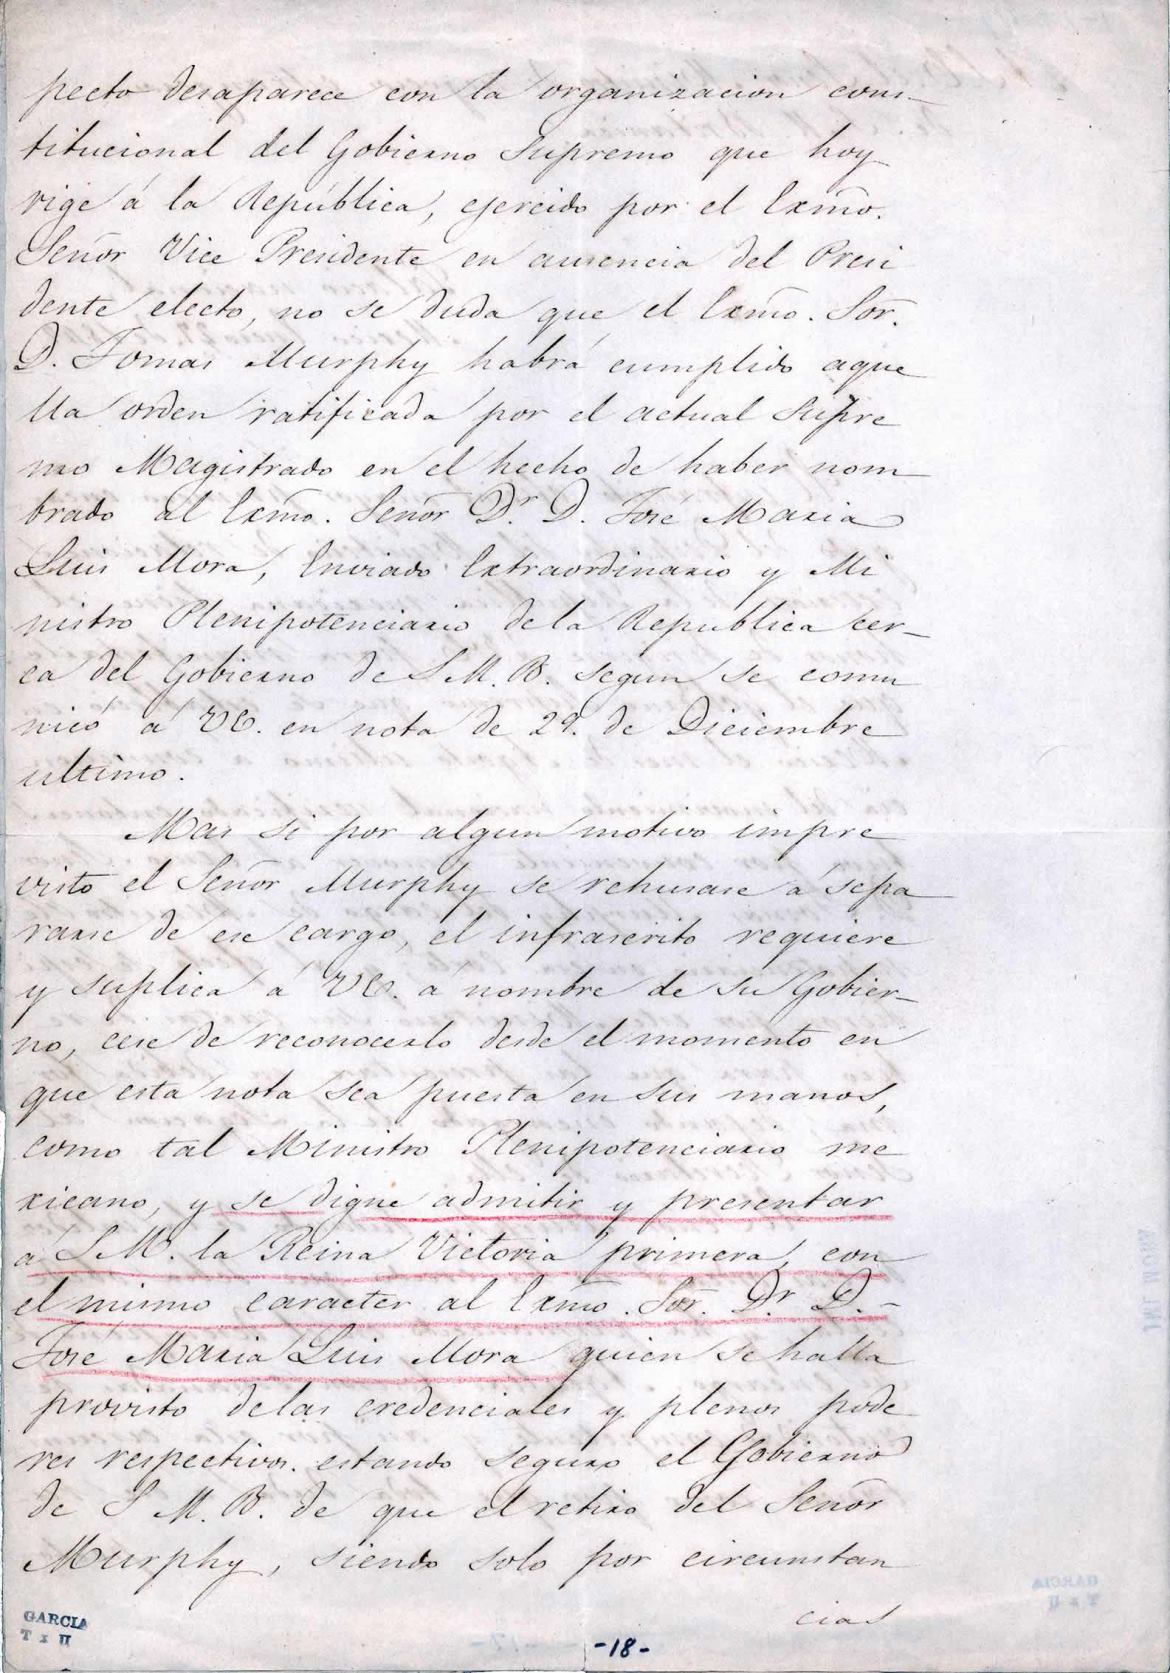 pecto desaparece con la organizacion cons-
titucional del Gobierno Supremo que hoy
rige á la República, ejercido por el Exmo.
Señor Vice Presidente en ausencia del Presi
dente electo, no se duda que el Exmo. Sor.
D. Tomas Murphy habrá cumplido aque
lla orden ratificada por el actual Supre
mo Magistrado en el hecho de haber nom
brado al Exmo. Señor Dr. D. José Maria
Luis Mora, Enviado Extraordinario y Mi
nistro Plenipotenciario de la Republica cer-
ca del Gobierno de S. M. B. segun se comu
nicó á VE. en nota de 29. de Diciembre
ultimo.
Mas si por algun motivo impre
visto el Señor Murphy se rehusase á sepa
rarse de ese cargo, el infrascrito requiere
y suplica á VE. á nombre de su Gobier-
no, cese de reconocerlo desde el momento en
que esta nota sea puesta en sus manos,
como tal Ministro Plenipotenciario me
xicano, y se digne admitir y presentar
á S. M. la Reina Victoria primera, con
el mismo caracter al Exmo. Sor. Dr D.-
José Maria Luis Mora quien se halla
provisto de las credenciales y plenos pode
res respectivos. estando seguro el Gobierno
de S. M. B. de que el retiro del Señor
Murphy, siendo solo por circunstan
cias
GARCIA
T x II
-18-